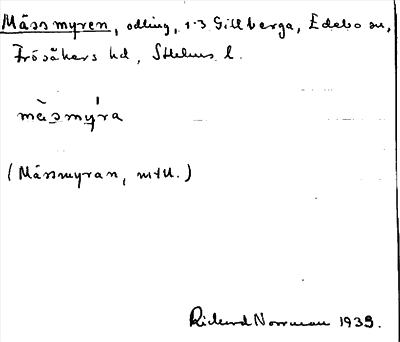 Mässmyren, odling, 1:3 Gillberga, Edebo sn,
Frösåkers hd, Sthlms l.
mä̀smýra
(Mässmyran, mtU.)
Rickard Norrman 1939.